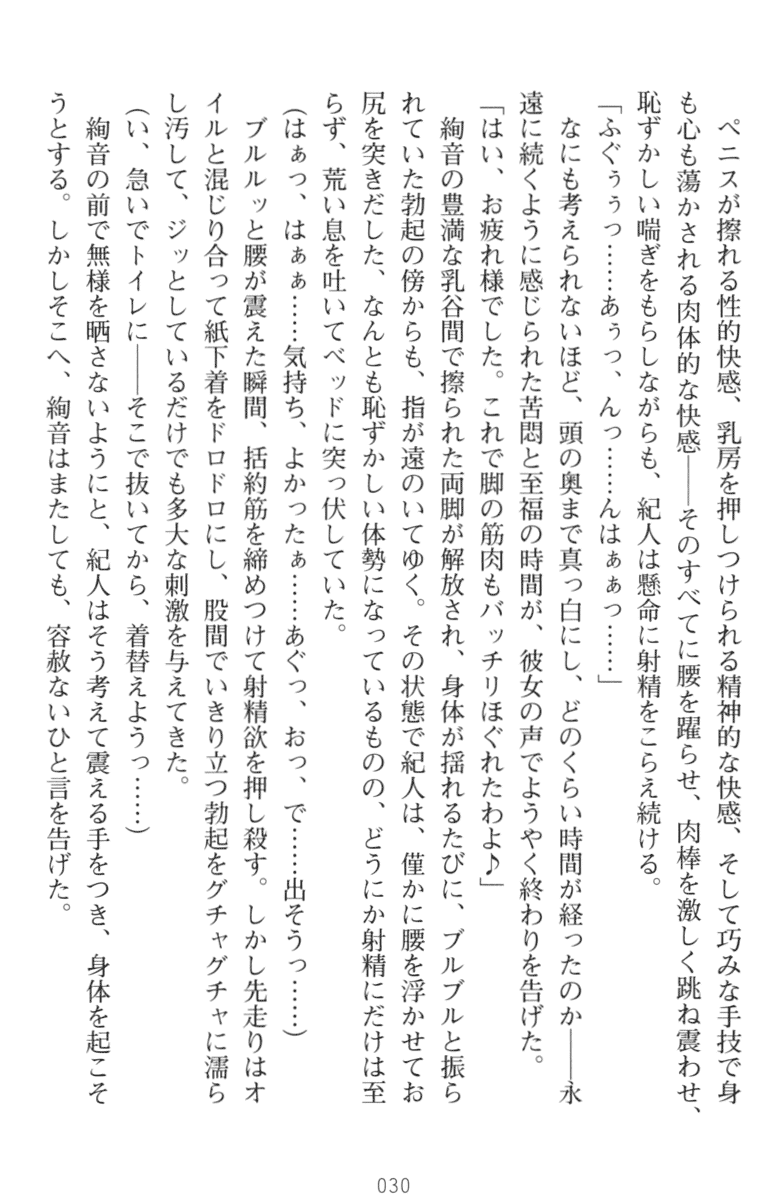 ペニスが擦れる性的快感、乳房を押しつけられる精神的な快感、そして巧みな手技で身
も心も蕩かされる肉体的な快感――そのすべてに腰を躍らせ、肉棒を激しく跳ね震わせ、
恥ずかしい喘ぎをもらしながらも、紀人は懸命に射精をこらえ続ける。
「ふぐぅぅっ……あぅっ、んっ……んはぁぁっ……」
なにも考えられないほど、頭の奥まで真っ白にし、どのくらい時間が経ったのか――永
遠に続くように感じられた苦悶と至福の時間が、彼女の声でようやく終わりを告げた。
「はい、お疲れ様でした。これで脚の筋肉もバッチリほぐれたわよ♪」
絢音の豊満な乳谷間で擦られた両脚が解放され、身体が揺れるたびに、ブルブルと振ら
れていた勃起の傍からも、指が遠のいてゆく。その状態で紀人は、僅かに腰を浮かせてお
尻を突きだした、なんとも恥ずかしい体勢になっているものの、どうにか射精にだけは至
らず、荒い息を吐いてベッドに突っ伏していた。
(はぁっ、はぁぁ……気持ち、よかったぁ……あぐっ、おっ、で……出そうっ……)
ブルルッと腰が震えた瞬間、括約筋を締めつけて射精欲を押し殺す。しかし先走りはオ
イルと混じり合って紙下着をドロドロにし、股間でいきり立つ勃起をグチャグチャに濡ら
し汚して、ジッとしているだけでも多大な刺激を与えてきた。
(い、急いでトイレに――そこで抜いてから、着替えようっ……)
絢音の前で無様を晒さないようにと、紀人はそう考えて震える手をつき、身体を起こそ
うとする。しかしそこへ、絢音はまたしても、容赦ないひと言を告げた。
030